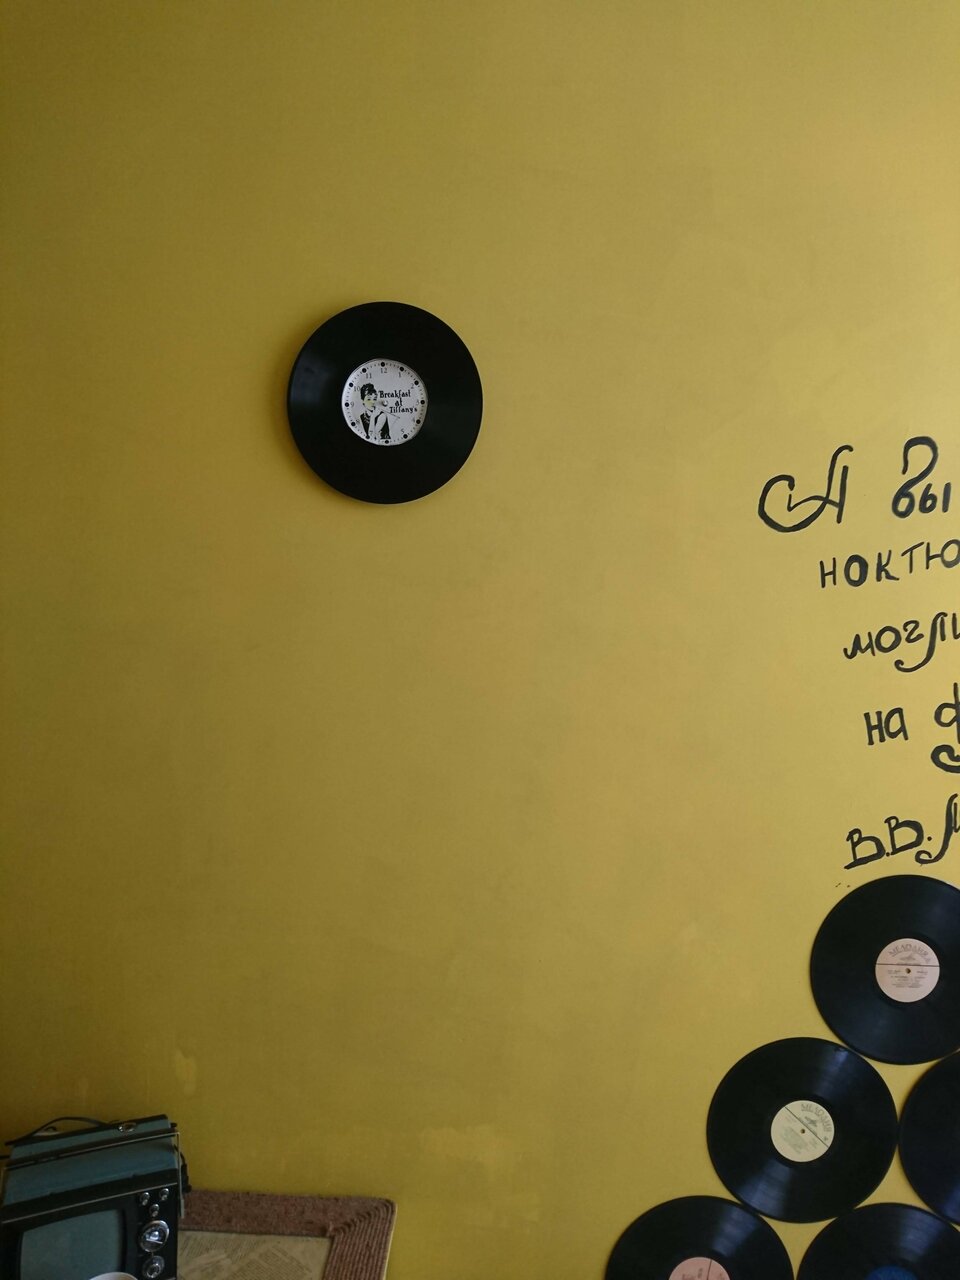 12
11
1
10
9
Breakfast
at
Tiffany's
5
А вы
ноктю
могли
на ф
В.В. М
МЕЛОДИЯ
МЕЛОДИЯ